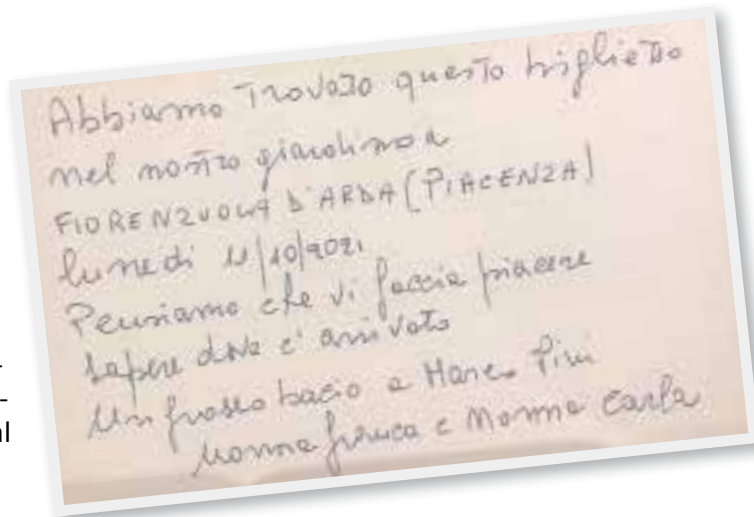 Abbiamo Trovato questo biglietto
nel nostro giardino a
FIORENZUOLA D'ARDA (PIACENZA)
lunedì 11/10/2021
Pensiamo che vi faccia piacere
sapere dove e' arrivato
Un grosso bacio a Marco Pini
Nonna e Nonna Carla
-
-
al